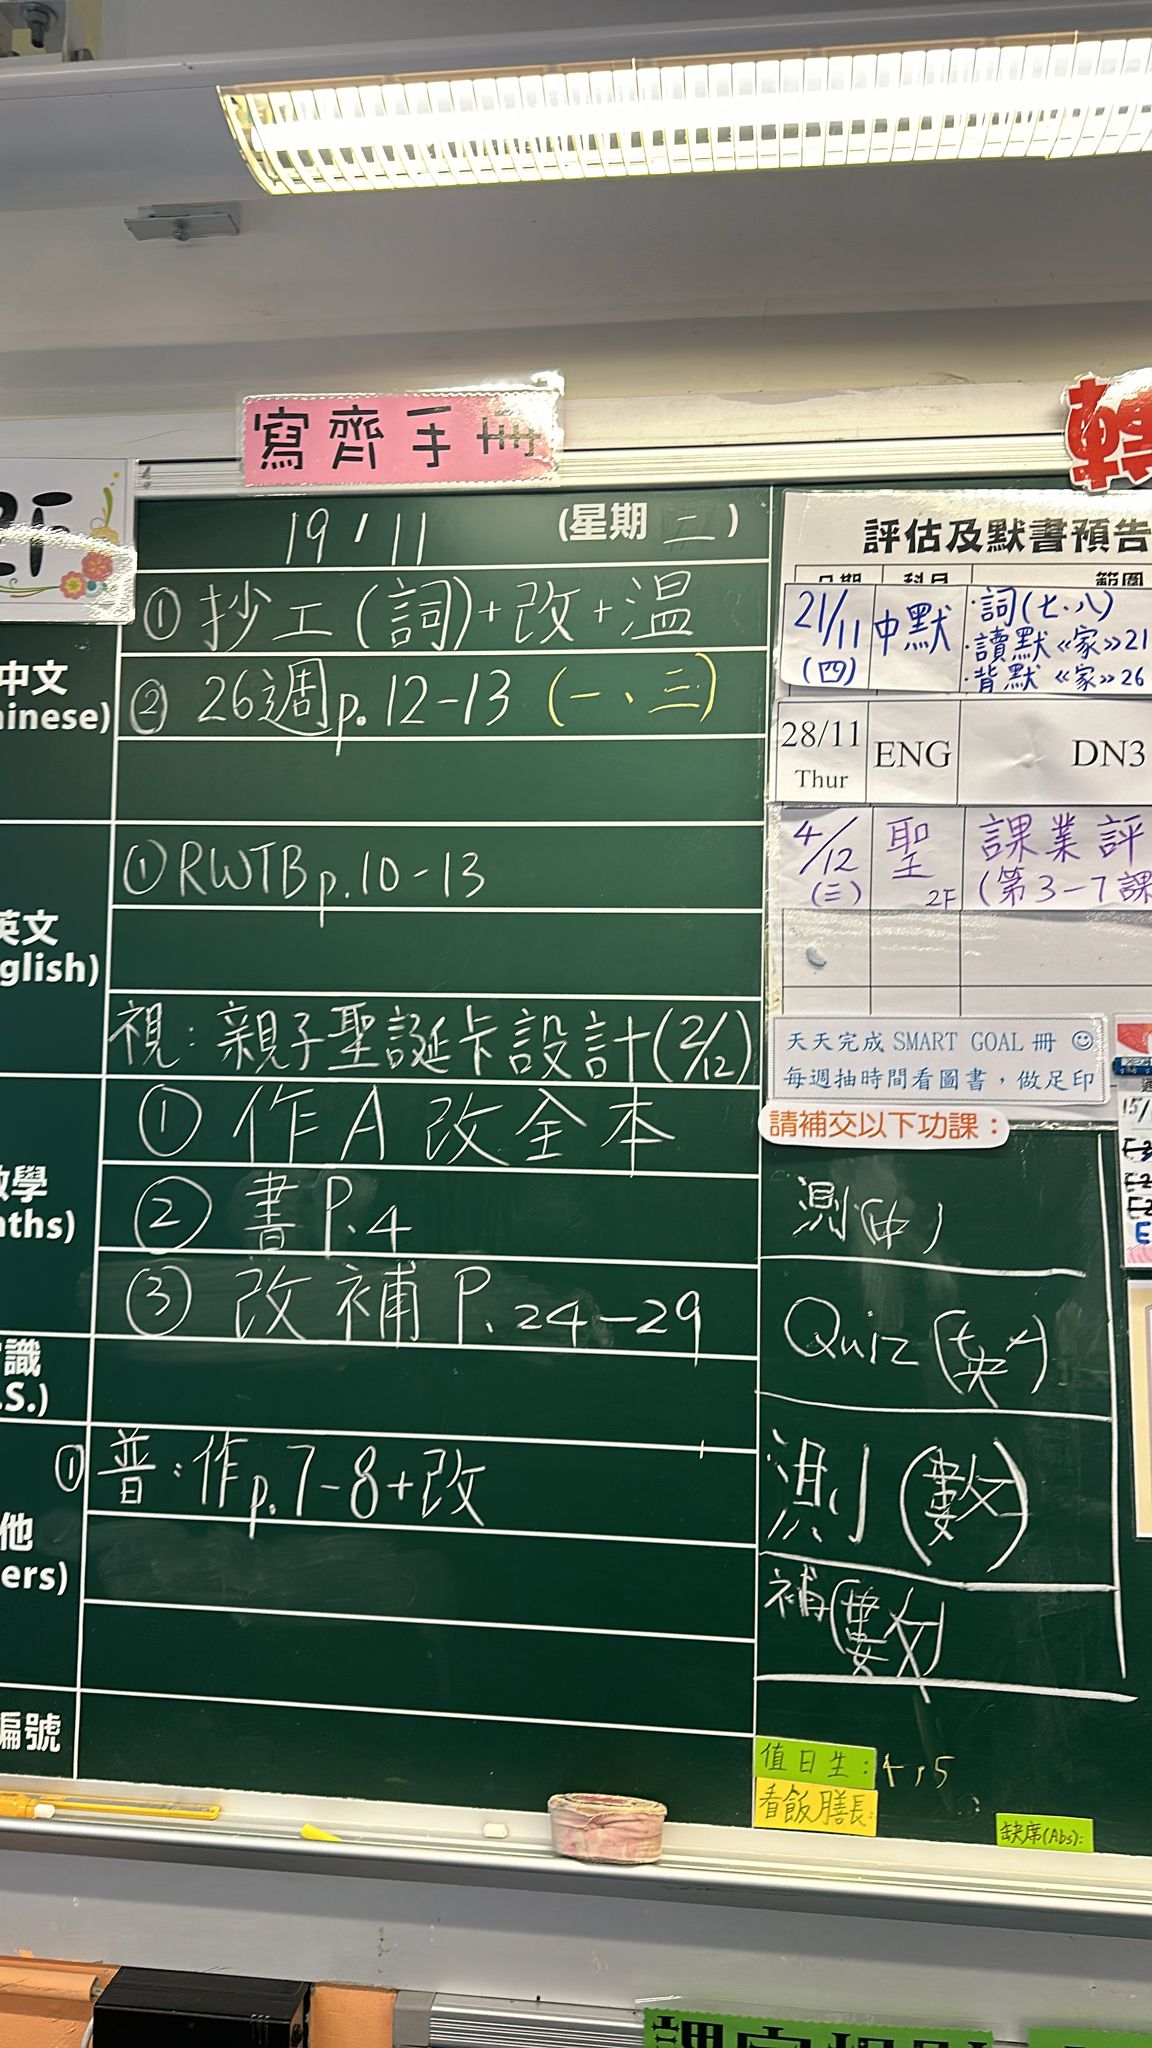 寫齊手冊
19/11 (星期 二)
中文
①抄工(詞)+改+溫
② 26週p.12-13 (一、三)
英文
①RWTBp.10-13
視:親子聖誕卡設計(2/12)
① 作A改全本
② 書P.4
③ 改補P.24-29
①普:作p.7-8+改
編號
評估及默書預告
日期 科目 範圍
21/11 (四) 中默 ·詞(七、八)
·讀默《家》21
·背默《家》26
28/11 Thur ENG DN3
4/12 (三) 聖 2F 課業評
(第3-7課
天天完成 SMART GOAL 冊 ☺
每週抽時間看圖書，做足印
請補交以下功課：
測(中)
Quiz(英)
測(數)
補(數)
值日生: 4,5
看飯膳長:
缺席(Abs):